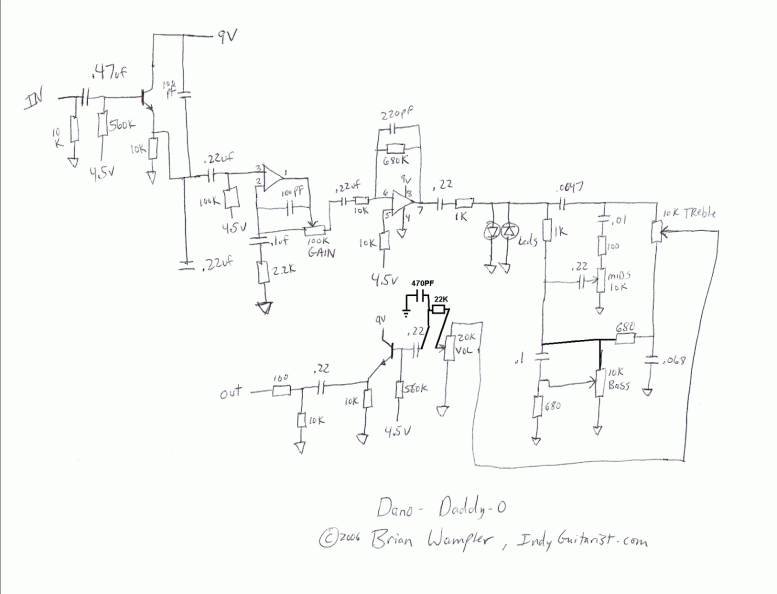 9V
.47uf
IN
100
PF
10
K
560K
10K
4.5V
.22uf
3
1
2
100PF
100K
4.5V
.1uf
100K
GAIN
2.2K
.22uf
220PF
680K
.22uf
10K
6
9V
8
7
5
4
10K
4.5V
.22
1K
Leds
.0047
1K
.01
100
.22
MIDS
10K
10K TReble
680
.1
10K
BaSS
.068
680
470PF
22K
9V
.22
20K
VOL
560K
4.5V
10K
.22
100
OUT
10K
Dano- Daddy-O
©2006 Brian Wampler, IndyGuitarist.com